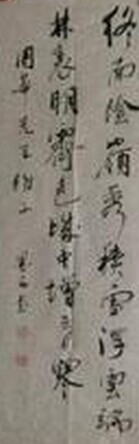 终南阴岭秀积雪浮云端
林表明霁色城中增暮寒
国华先生